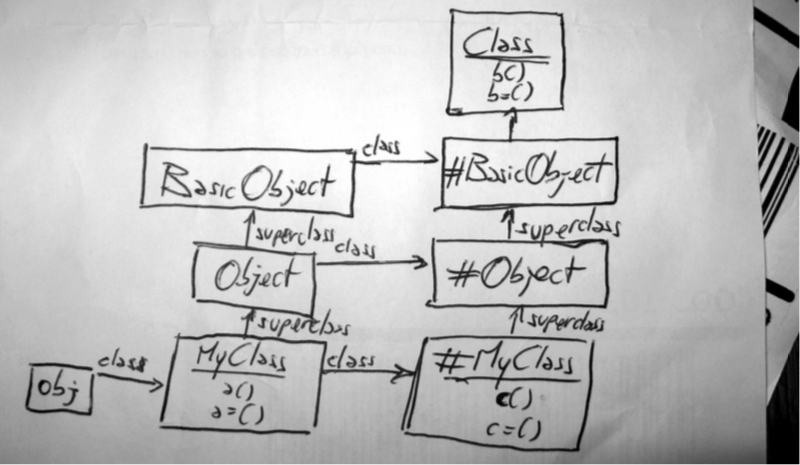 Class
b()
b=()
BasicObject
class
#BasicObject
superclass
superclass
Object
class
#Object
superclass
superclass
obj
class
MyClass
a()
a=()
class
#MyClass
c()
c=()